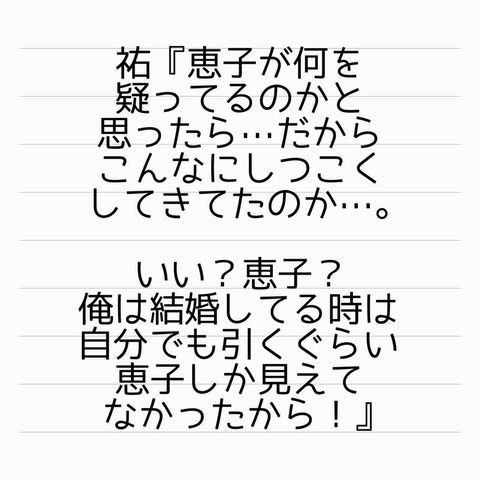 祐『恵子が何を
疑ってるのかと
思ったら…だから
こんなにしつこく
してきてたのか…。
いい？恵子？
俺は結婚してる時は
自分でも引くぐらい
恵子しか見えて
なかったから！』